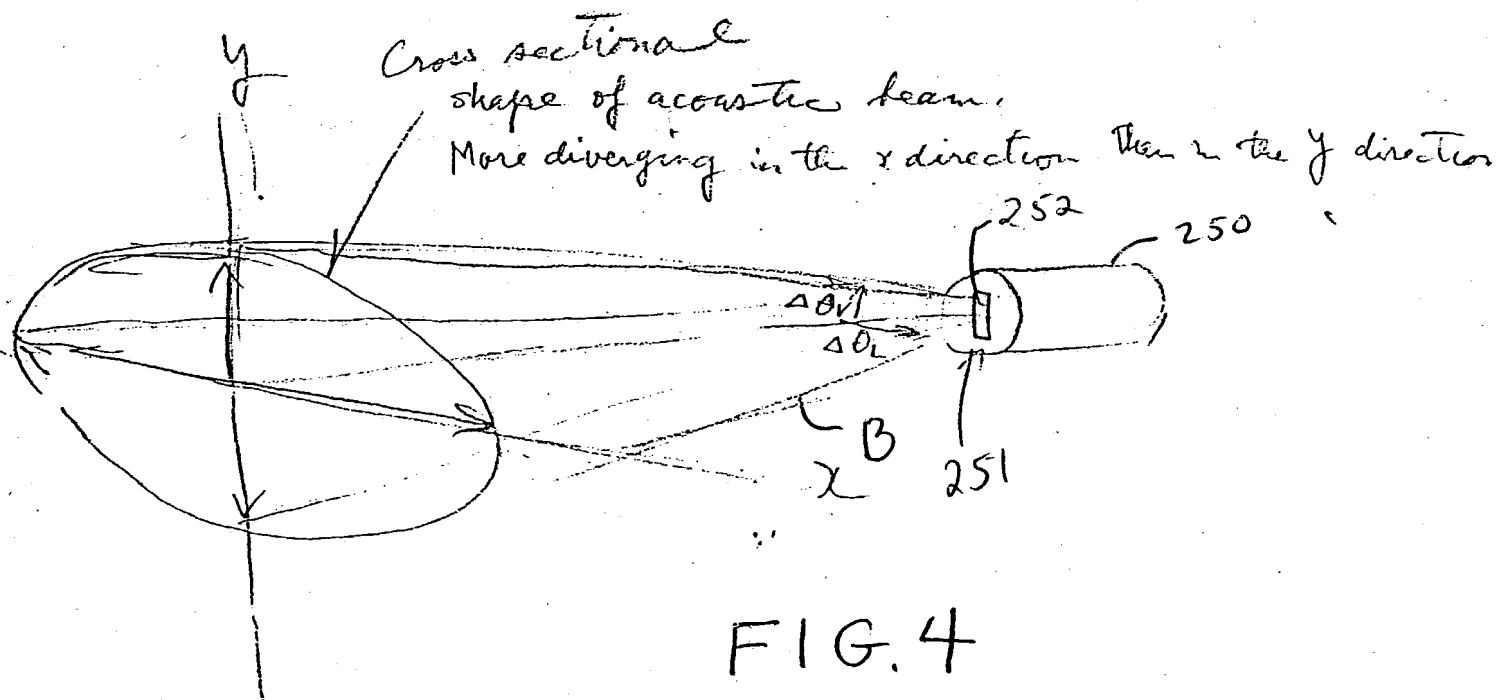 y
Cross sectional
shape of acoustic beam.
More diverging in the x direction than in the y direction
252
250
Δθv
ΔθL
B
x
251
FIG. 4